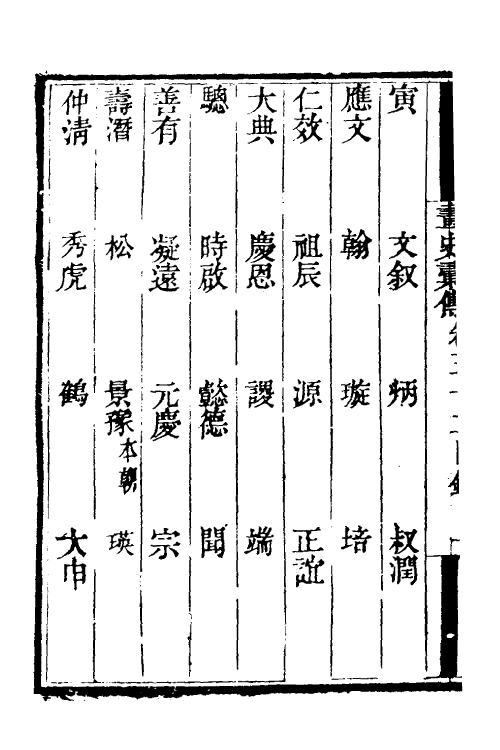 寅　文叙　炳　叔潤
應文　翰　璇　培
仁效　祖辰　源　正誼
大典　慶恩　謖　端
驄　時啟　懿德　聞
善有　凝遠　元慶　宗
壽潛　松　景豫本朝　瑛
仲清　秀虎　鶴　大申
畫史彙傳卷三十二目錄